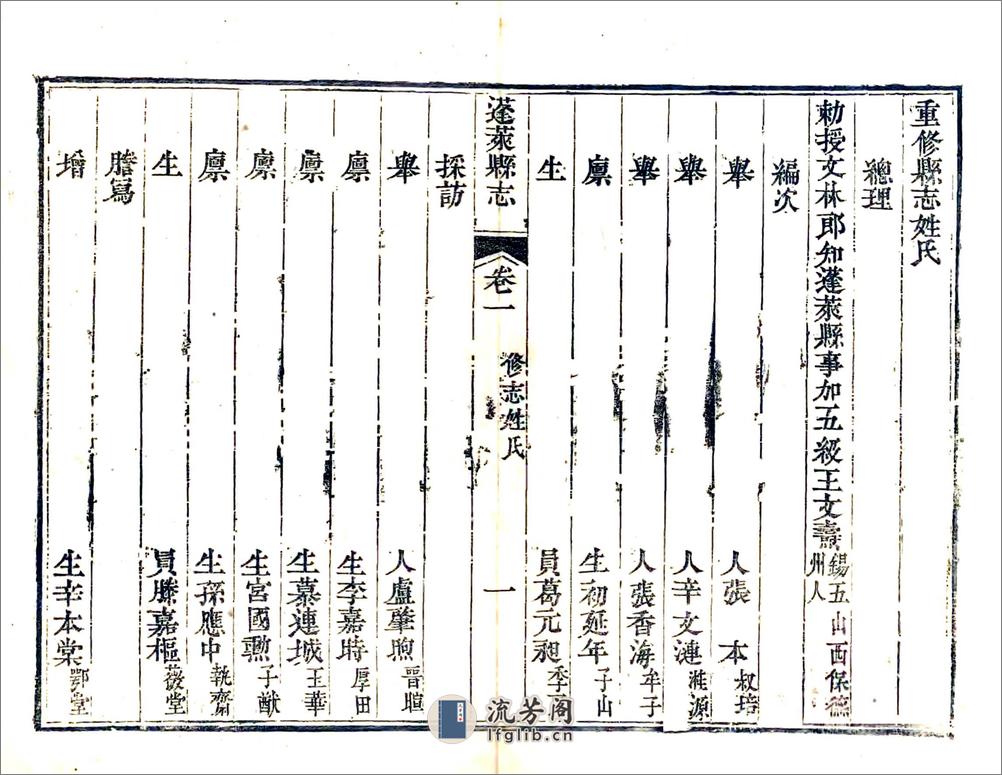 重修縣志姓氏
總理
勅授文林郎知蓬萊縣事加五級王文燾錫五山西保德州人
編次
舉人張本叔培
舉人辛文漣漼源
舉人張香海牟子
廪生初延年子山
生員葛元昶季
蓬萊縣志 卷一 修志姓氏 一
採訪
舉人盧肇煦晋暄
廪生李嘉時厚田
廪生慕連城玉華
廪生宮國勲子猷
廪生孫應中執齋
生員滕嘉樞薇堂
謄寫
增生辛本棠鄂堂
流芳阁
lfglib.cn